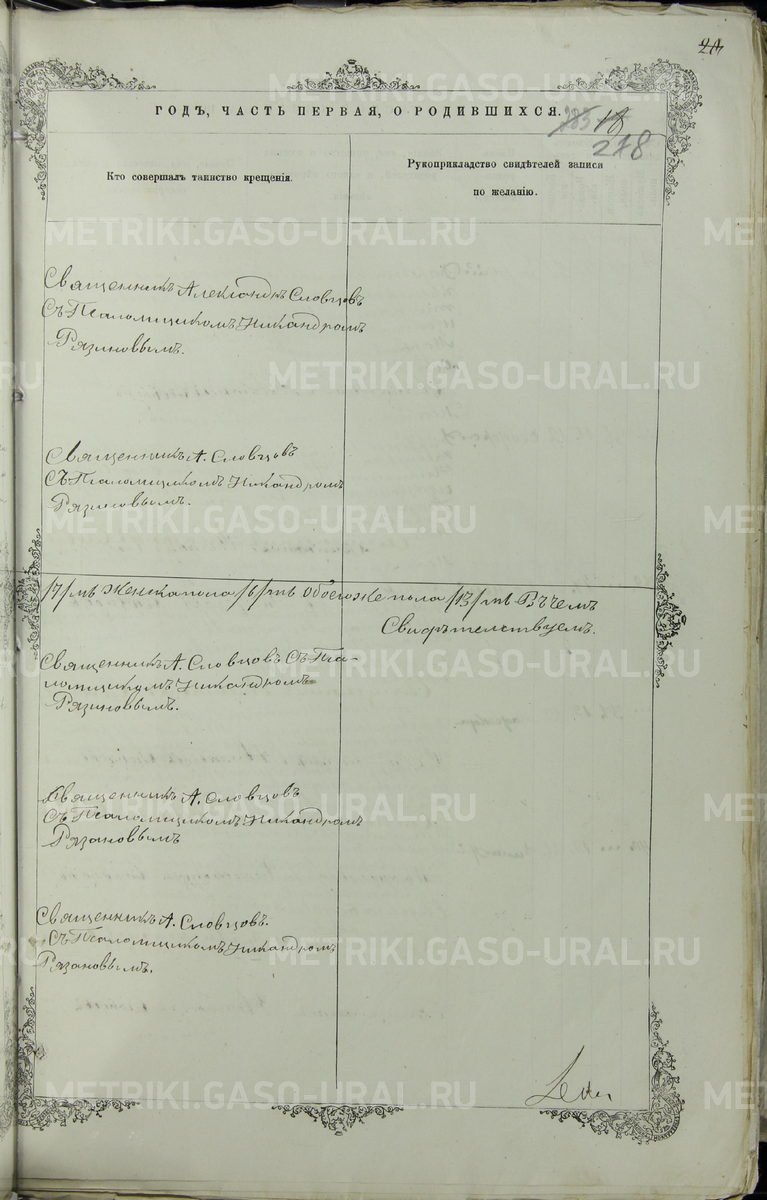 ГОДЪ, ЧАСТЬ ПЕРВАЯ, О РОДИВШИХСЯ.
18
278
Кто совершалъ таинство крещенія.
Рукоприкладство свидѣтелей записи
по желанію.
Священникъ Александръ Словцовъ
Съ Псаломщикомъ Никандромъ
Рязановымъ.
Священникъ А. Словцовъ
Съ Псаломщикомъ Никандромъ
Рязановымъ.
/7/мь Женска пола /6/ть Обоего же пола /13/ть Въ чемъ
Свидѣтельствуемъ.
Священникъ А. Словцовъ Съ Пса-
ломщикумъ Никандромъ
Рязановымъ.
Священникъ А. Словцовъ
Съ Псаломщикомъ Никандромъ
Рязановымъ
Священникъ А. Словцовъ.
Съ Псаломщикомъ Никандромъ
Рязановымъ.
METRIKI.GASO-URAL.RU